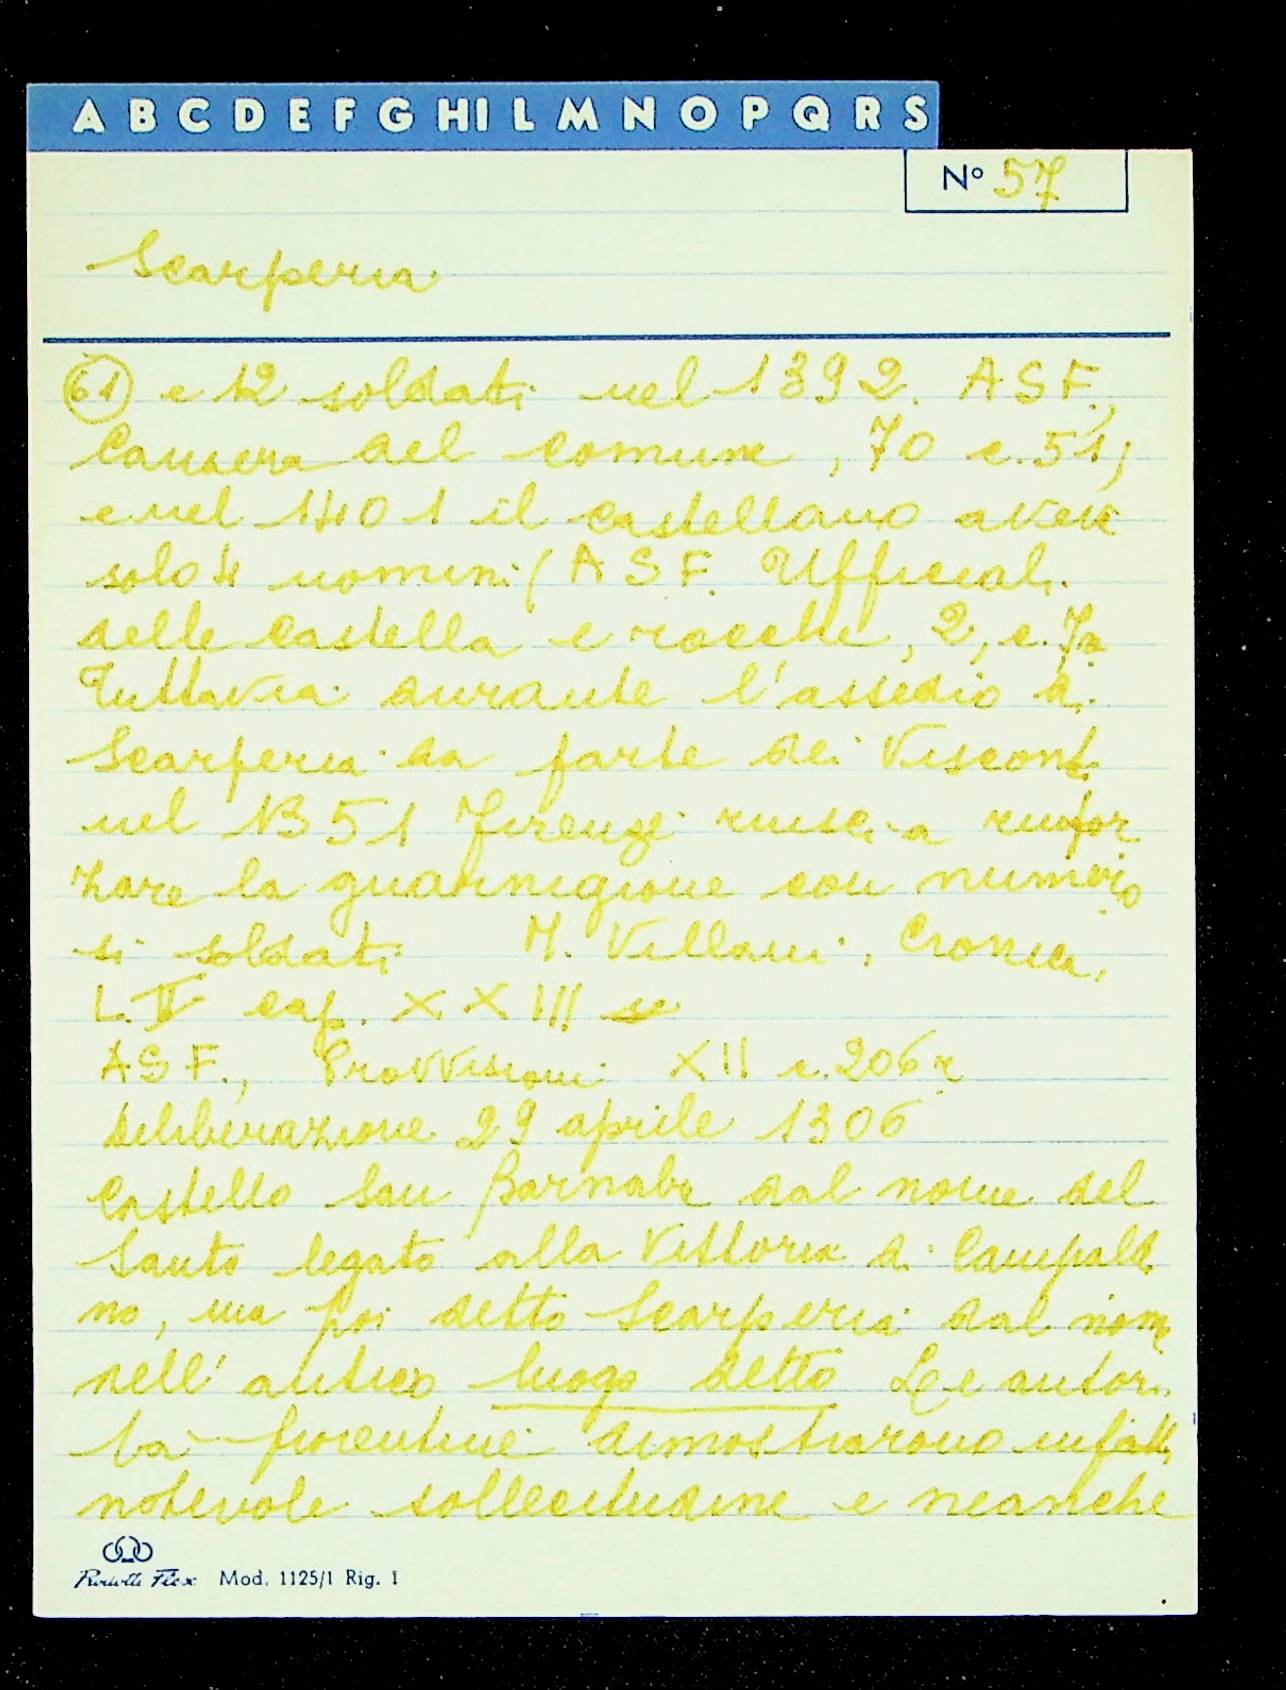 A B C D E F G H I L M N O P Q R S
N° 57
Scarperia
61 e 12 soldati nel 1392. A S F.,
Camera del comune, 70 c. 51,
e nel 1401 il castellano aveva
solo 4 uomini (A S F. Ufficiali
delle castella e rocche, 2, c. 7a
Tuttavia durante l'assedio di
Scarperia da parte dei Visconti
nel 1351 Firenze riuscì a rinfor
zare la guarnigione con numero
si soldati M. Villani, Cronica,
L. II cap. XXIII
A S F., Provvisioni XII c. 206 r
deliberazione 29 aprile 1306
Castello San Barnaba dal nome del
Santo legato alla Vittoria di Campaldi
no, ma poi detto Scarperia dal nome
nell' antico luogo detto Le autori
tà fiorentine dimostrarono infatti
notevole sollecitudine e neanche
Mod. 1125/1 Rig. 1